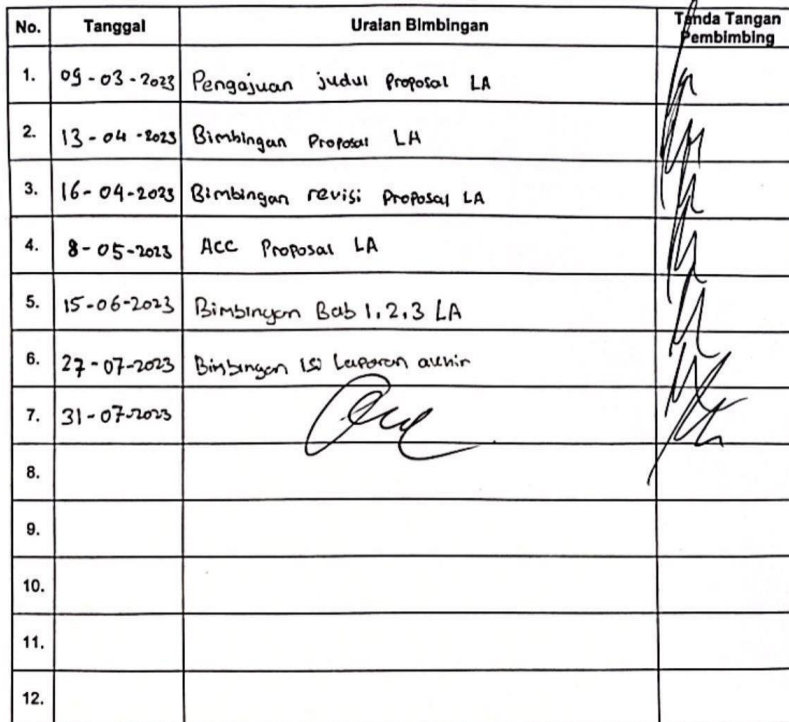 No. Tanggal Uraian Bimbingan Tanda Tangan Pembimbing
1. 09-03-2023 Pengajuan judul Proposal LA
2. 13-04-2023 Bimbingan Proposal LA
3. 16-04-2023 Bimbingan revisi Proposal LA
4. 8-05-2023 Acc Proposal LA
5. 15-06-2023 Bimbingan Bab 1,2,3 LA
6. 27-07-2023 Bimbingan isi Laporan akhir
7. 31-07-2023
8.
9.
10.
11.
12.